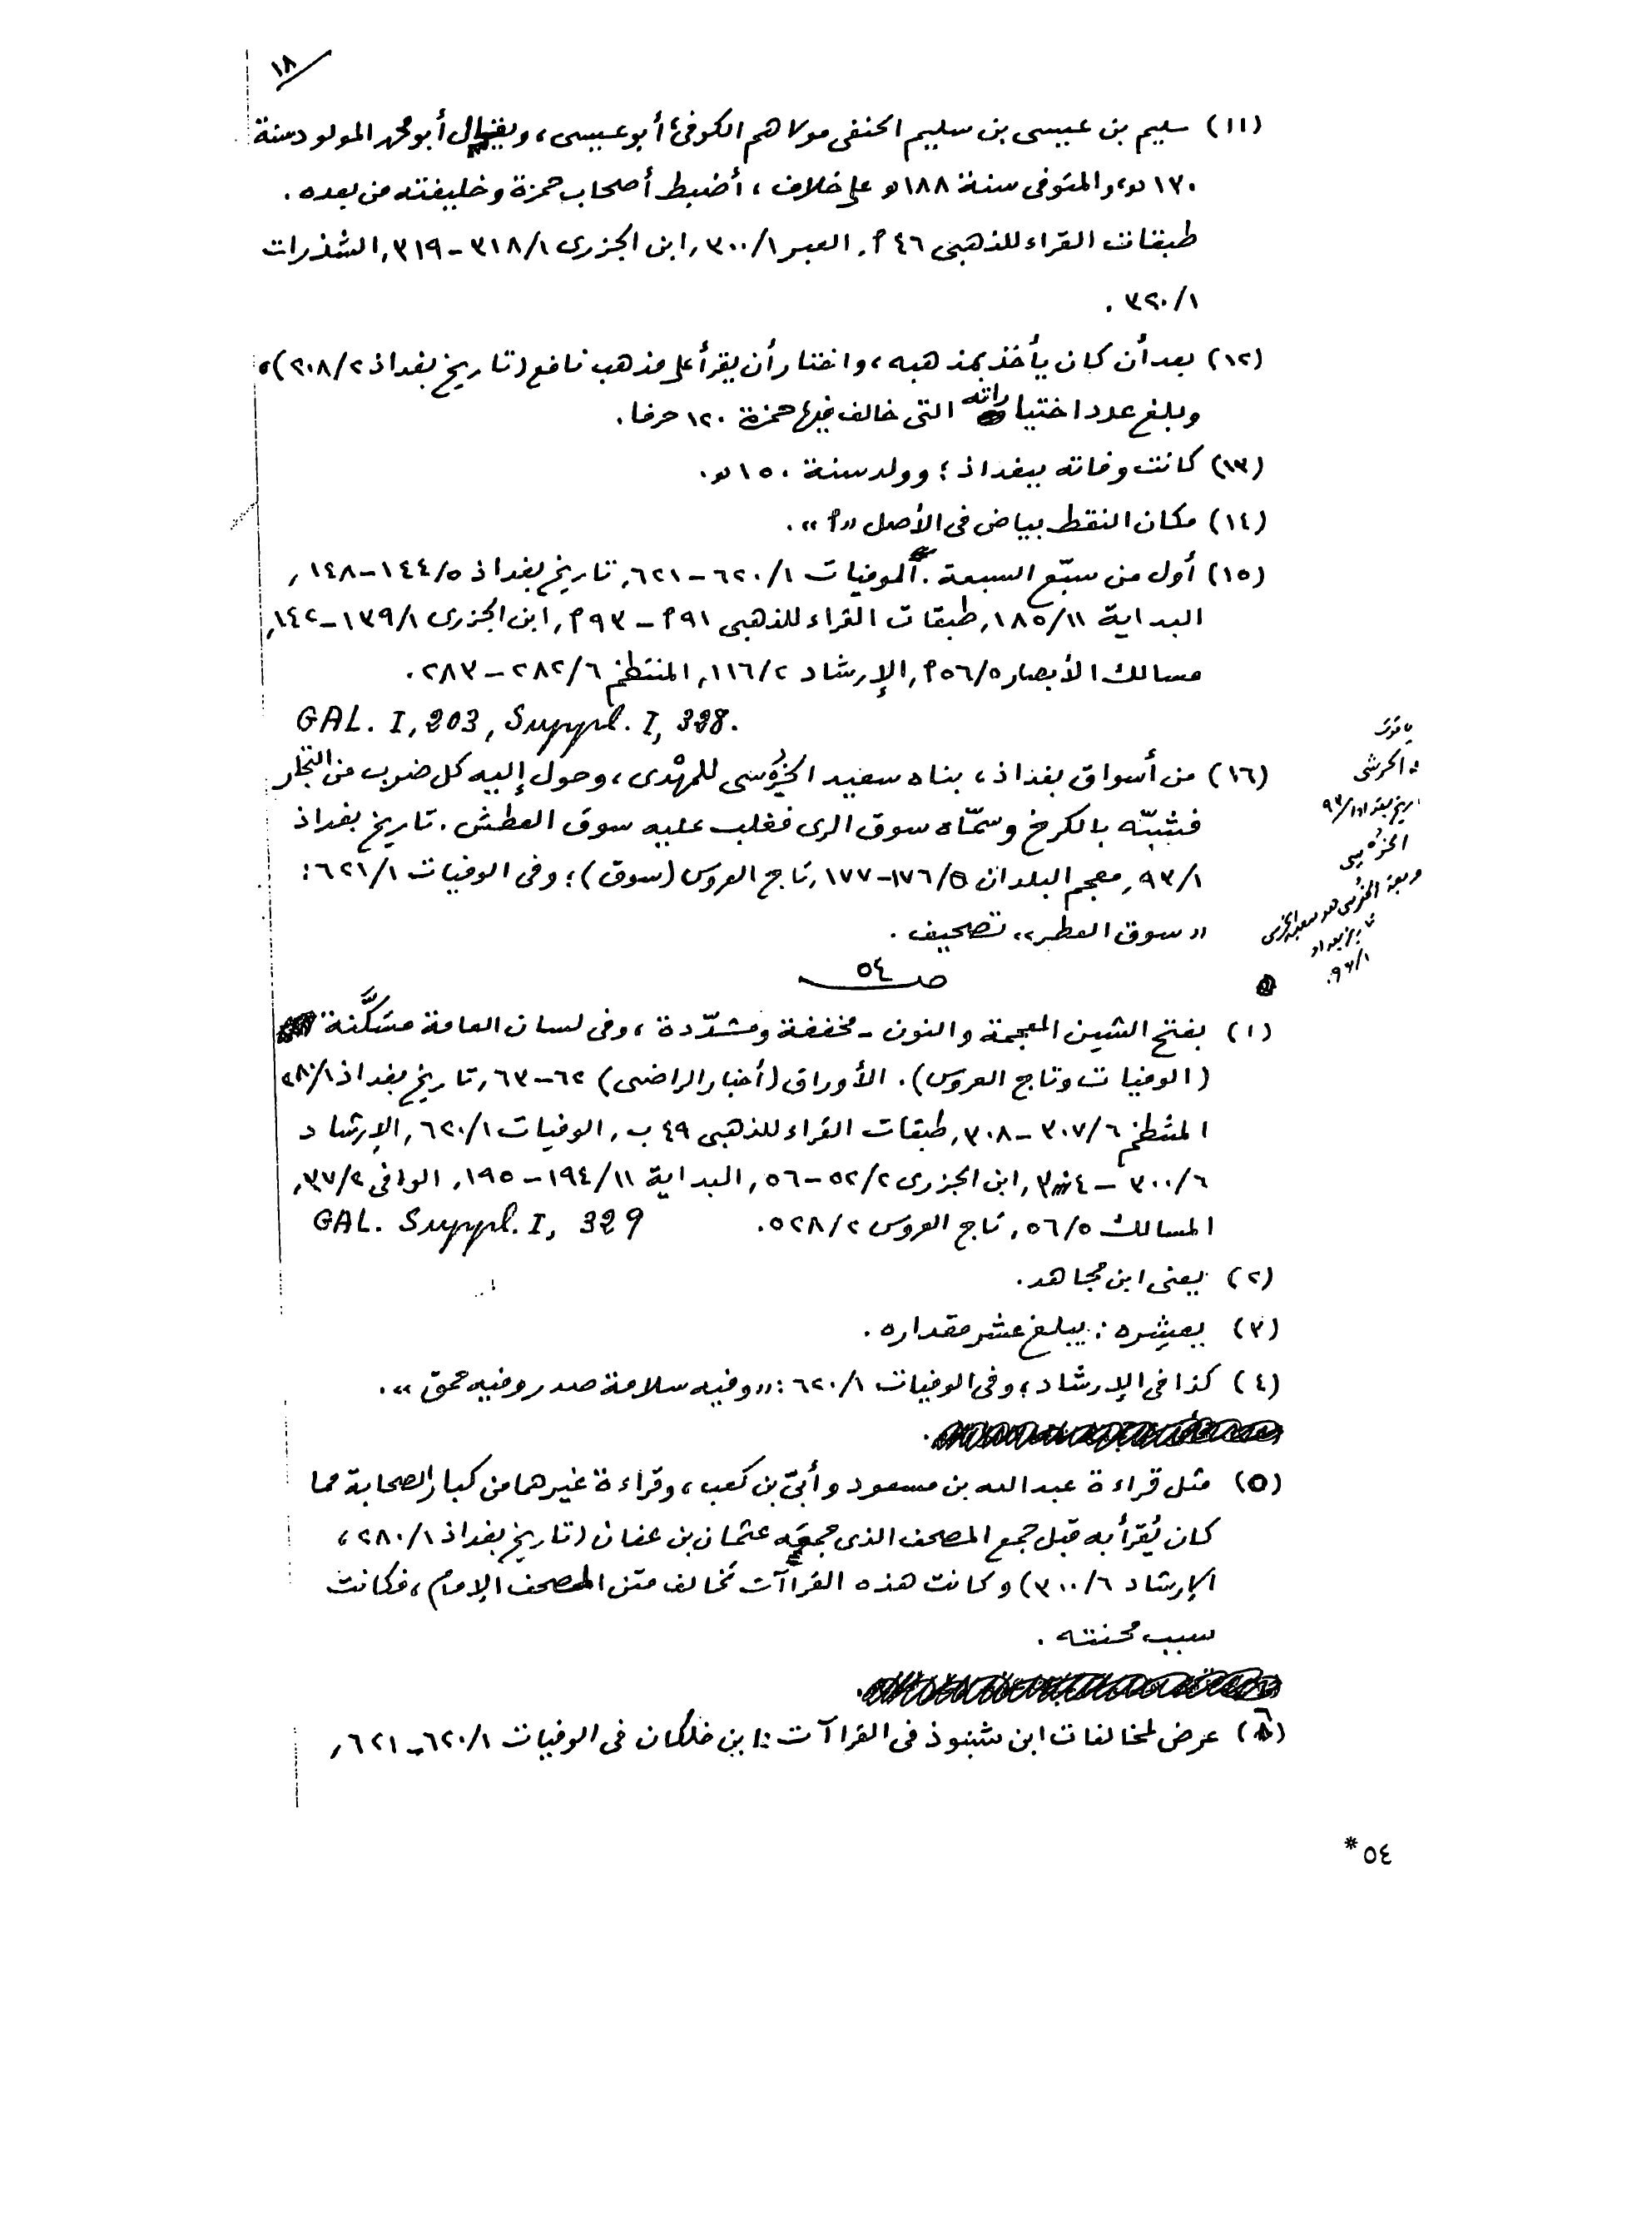 ١٨
(١١) سليم بن عيسى بن سليم الحنفى مولاهم الكوفى؛ أبو عيسى، ويقال أبو محمد المولود سنة
١٣٠ ه، والمتوفى سنة ١٨٨ ه على خلاف، أضبط أصحاب حمزة وخليفته من بعده .
طبقات القراء للذهبى ٤٦ ٲ, العبر ٣٠٠/١, ابن الجزرى ٣١٨/١ - ٣١٩, الشذرات
٣٢٠/١ .
(١٢) بعد أن كان يأخذ بمذهبه، واختار أن يقرأ على مذهب نافع (تاريخ بغداذ ٢٠٨/٢)،
وبلغ عدد اختياراته التى خالف فيها حمزة ١٢٠ حرفا.
(١٣) كانت وفاته ببغداذ؛ وولد سنة ١٥٠ ه.
(١٤) مكان النقط بياض فى الأصل «ٲ».
(١٥) أول من سبّع السبعة. الوفيات ٦٢٠/١ - ٦٢١, تاريخ بغداذ ١٤٤/٥ - ١٤٨,
البداية ١٨٥/١١, طبقات القراء للذهبى ٩١ ٲ - ٩٣ ٲ, ابن الجزرى ١٣٩/١ - ١٤٢,
مسالك الأبصار ٥٦/٥ ٲ, الإرشاد ١١٦/٢, المنتظم ٢٨٢/٦ - ٢٨٣.
GAL. I, 203, Suppl. I, 328.
(١٦) من أسواق بغداذ، بناه سعيد الخُرْسى للمهْدى، وحول إليه كل ضرب من التجار
فشبّه بالكرخ وسمّاه سوق الرى فغلب عليه سوق العطش. تاريخ بغداذ
٩٣/١, معجم البلدان ١٧٦/٥ - ١٧٧, تاج العروس (سوق)؛ وفى الوفيات ٦٢١/١:
«سوق العطر» تصحيف .
ياقوت
الحرشى
٩٣/١
الخُرْسى
تاريخ بغداد
٩٣/١.
صـ ٥٤
(١) بفتح الشين المعجمة والنون - مخففة ومشدّدة، وفى لسان العامة مسَكَّنة
(الوفيات وتاج العروس). الأوراق (أخبار الراضى) ٦٢ - ٦٣, تاريخ بغداذ ٢٨٠/١
المنتظم ٣٠٧/٦ - ٣٠٨, طبقات القراء للذهبى ٤٩ ب, الوفيات ٦٢٠/١, الإرشاد
٣٠٠/٦ - ٣٠٤, ابن الجزرى ٥٢/٢ - ٥٦, البداية ١٩٤/١١ - ١٩٥, الوافى ٣٧/٢,
المسالك ٥٦/٥, تاج العروس ٥٢٨/٢. GAL. Suppl. I, 329
(٢) يعنى ابن مجاهد.
(٣) يعشِره : يبلغ عشر مقداره .
(٤) كذا فى الإرشاد؛ وفى الوفيات ٦٢٠/١: «وفيه سلامة صدر وفيه حمق».
(٥) مثل قراءة عبد الله بن مسعود وأبىّ بن كعب، وقراءة غيرهما من كبار الصحابة مما
كان يُقرأ به قبل جمع المصحف الذى جمعَه عثمان بن عفان (تاريخ بغداذ ٢٨٠/١،
الإرشاد ٣٠٠/٦) وكانت هذه القراآت تخالف متن المصحف الإمام، فكانت
سبب محنته .
(٦) عرض لمخالفات ابن شنبوذ فى القراآت: ابن خلكان فى الوفيات ٦٢٠/١ - ٦٢١,
٥٤*